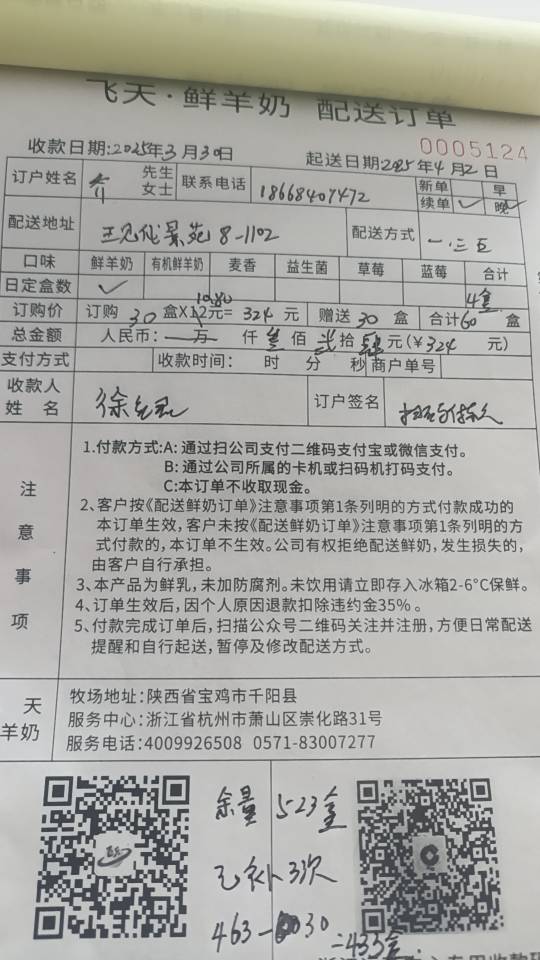 飞天·鲜羊奶 配送订单
收款日期:2025年3月30日 起送日期2025年4月2日 0005124
订户姓名 先生 女士 联系电话 18668407472 新单 续单✓ 早 晚✓
配送地址 景苑 8-1102 配送方式 一.三.五
口味 鲜羊奶 有机鲜羊奶 麦香 益生菌 草莓 蓝莓 合计
日定盒数 ✓ 4盒
订购价 订购 30 盒X12元= 324 元 赠送 30 盒 合计60 盒
10.80
总金额 人民币: 一 万 仟 叁 佰 贰 拾 肆 元(¥324 元)
支付方式 收款时间: 时 分 秒 商户单号
收款人姓名 徐 订户签名
注意事项
1.付款方式:A: 通过扫公司支付二维码支付宝或微信支付。
B: 通过公司所属的卡机或扫码机打码支付。
C:本订单不收取现金。
2、客户按《配送鲜奶订单》注意事项第1条列明的方式付款成功的
本订单生效，客户未按《配送鲜奶订单》注意事项第1条列明的方
式付款的，本订单不生效。公司有权拒绝配送鲜奶，发生损失的，
由客户自行承担。
3、本产品为鲜乳，未加防腐剂。未饮用请立即存入冰箱2-6°C保鲜。
4、订单生效后，因个人原因退款扣除违约金35%。
5、付款完成订单后，扫描公众号二维码关注并注册，方便日常配送
提醒和自行起送，暂停及修改配送方式。
天
羊奶
牧场地址:陕西省宝鸡市千阳县
服务中心:浙江省杭州市萧山区崇化路31号
服务电话:4009926508 0571-83007277
余量 523盒
已补 3次
463-30
=433盒.